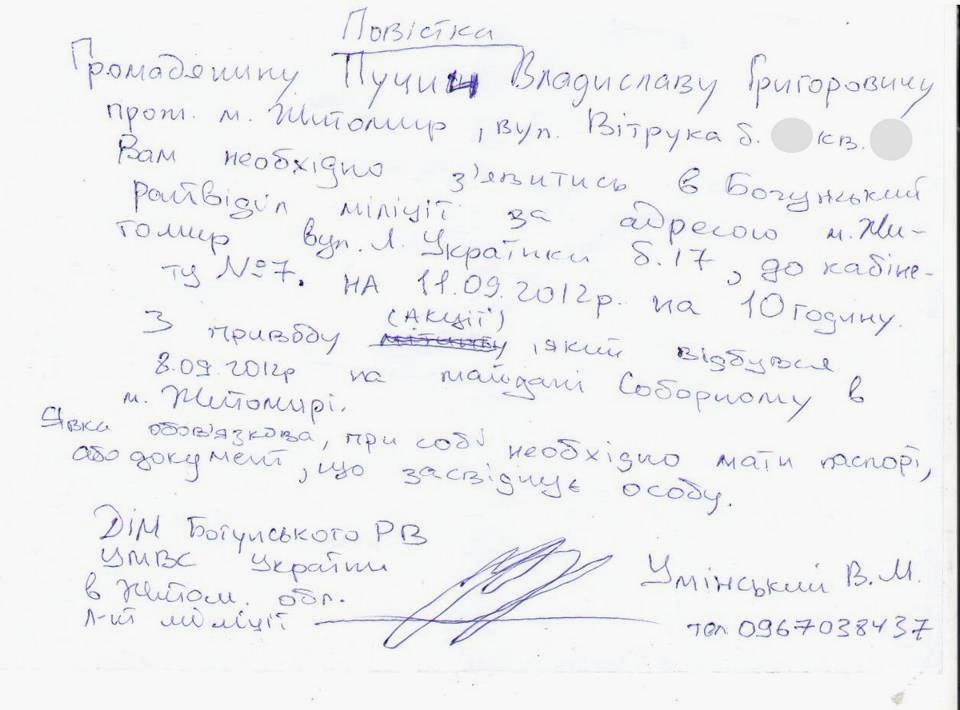 Повістка
Громадянину Пучич Владиславу Григоровичу
прож. м. Житомир, вул. Вітрука б. кв.
Вам необхідно з'явитись в Богунський
райвідділ міліції за адресою м. Жи-
томир вул. Л. Українки б. 17, до кабіне-
ту №7. НА 11.09.2012р. на 10 годину.
(АКЦІЇ)
З приводу ,який відбувся
8.09.2012р на майдані Соборному в
м. Житомирі.
Явка обов'язкова, при собі необхідно мати паспорт,
або документ, що засвідчує особу.
ДІМ Богунського РВ
УМВС України
в Житом. обл.
л-т міліції
Умінський В.М.
тел 0967038437